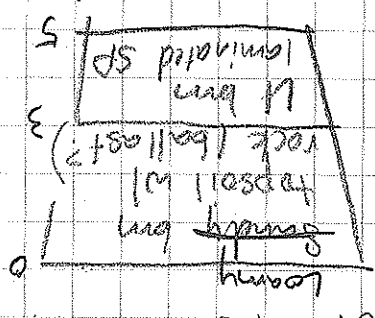 Loamy
0
sandy brn
topsoil w/
rock (ballast?)
3
lt brn
laminated SP
5